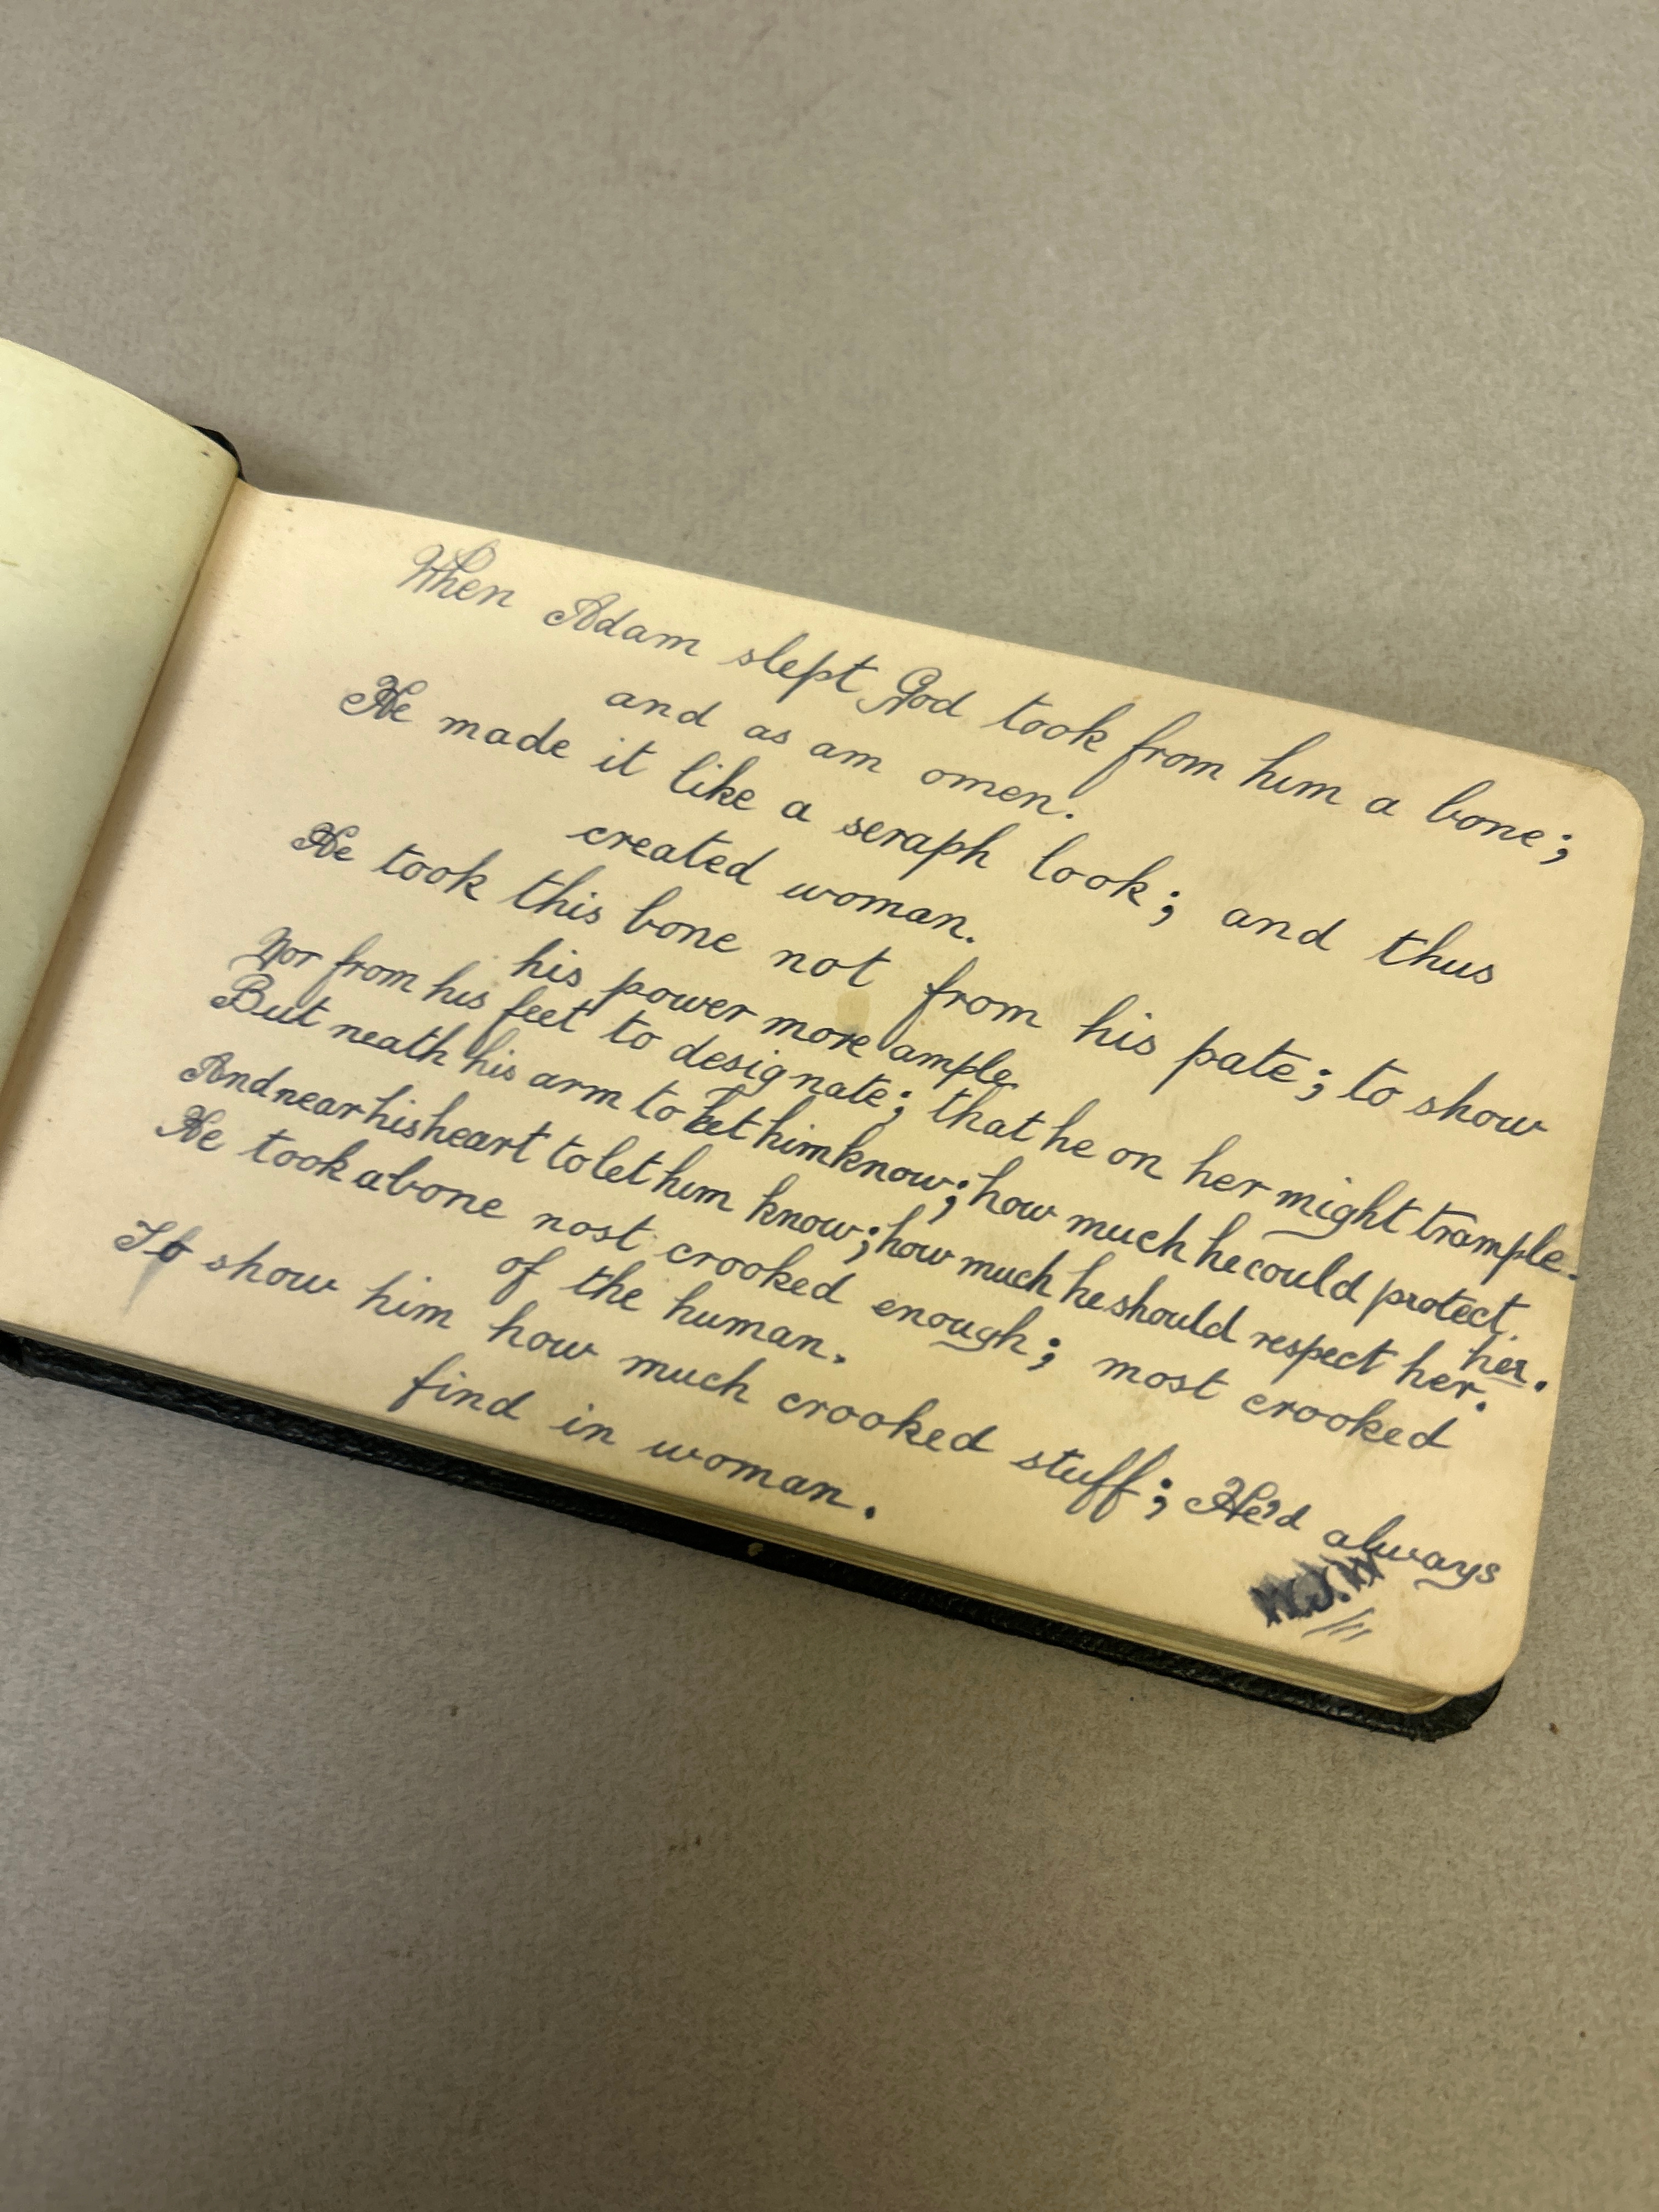 When Adam slept God took from him a bone;
and as am omen.
He made it like a seraph look; and thus
created woman.
He took this bone not from his pate; to show
his power more ample
Nor from his feet to designate; that he on her might trample.
But neath his arm to let him know; how much he could protect.
her.
And near his heart to let him know; how much he should respect her.
He took a bone nost crooked enough; most crooked
of the human.
To show him how much crooked stuff; He'd always
find in woman.